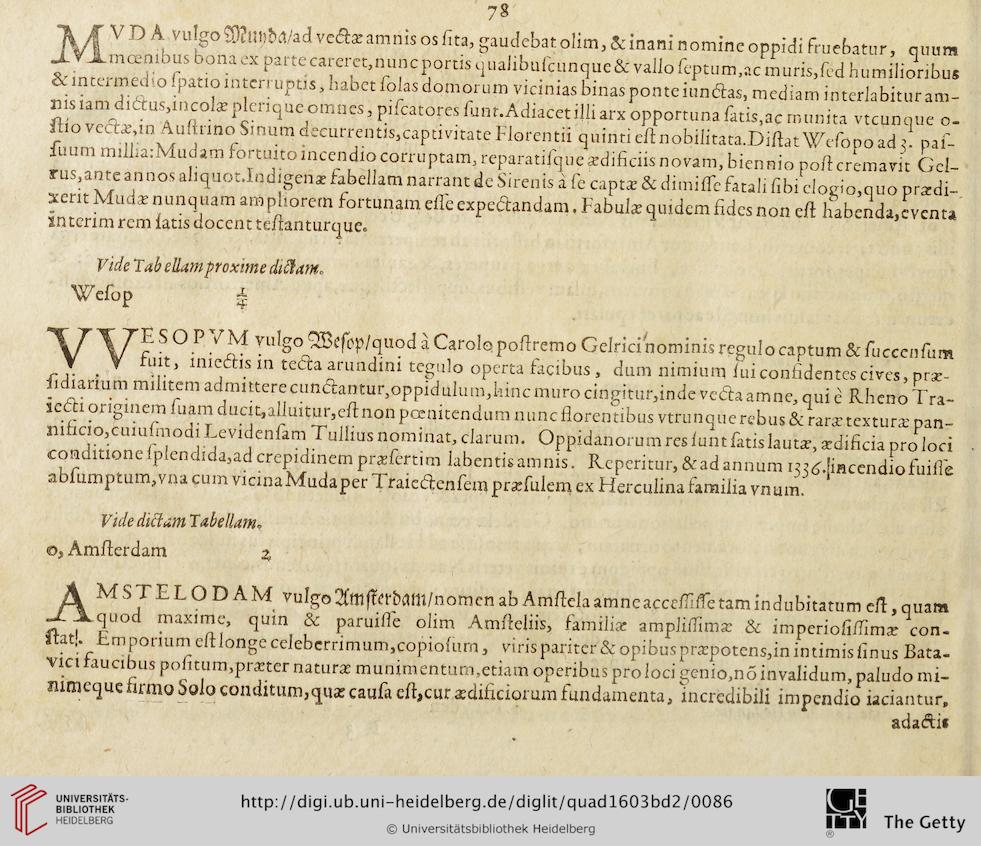 78
MVDA vulgo Muyda/ad vectæ amnis os ſita, gaudebat olim, & inani nomine oppidi fruebatur, quum
mœnibus bona ex parte careret, nunc portis qualibuſcunque & vallo ſeptum, ac muris, ſed humilioribus
& intermedio ſpatio interruptis, habet ſolas domorum vicinias binas ponte iunctas, mediam interlabitur am-
nis iam dictus, incolæ plerique omnes, piſcatores ſunt. Adiacet illi arx opportuna ſatis, ac munita vtcunque o-
ſtio vectæ, in Auſtrino Sinum decurrentis, captivitate Florentii quinti eſt nobilitata. Diſtat Weſopo ad 3. paſ-
ſuum millia: Mudam fortuito incendio corruptam, reparatiſque ædificiis novam, biennio poſt cremavit Gel-
rus, ante annos aliquot. Indigenæ fabellam narrant de Sirenis à ſe captæ & dimiſſe fatali ſibi elogio, quo prædi-
xerit Mudæ nunquam ampliorem fortunam eſſe expectandam. Fabulæ quidem fides non eſt habenda, eventa
interim rem ſatis docent teſtanturque.
Vide Tabellam proxime dictam.
Weſop 1/4
VVESOPVM vulgo Weſop/quod à Carolo poſtremo Gelrici nominis regulo captum & ſuccenſum
fuit, iniectis in tecta arundini tegulo operta facibus, dum nimium ſui confidentes cives, præ-
ſidiarium militem admittere cunctantur, oppidulum, hinc muro cingitur, inde vecta amne, qui è Rheno Tra-
iecti originem ſuam ducit, alluitur, eſt non pœnitendum nunc florentibus vtrunque rebus & raræ texturæ pan-
nificio, cuiuſmodi Levidenſam Tullius nominat, clarum. Oppidanorum res ſunt ſatis lautæ, ædificia pro loci
conditione ſplendida, ad crepidinem præſertim labentis amnis. Reperitur, & ad annum 1336. incendio fuiſſe
abſumptum, vna cum vicina Muda per Traiectenſem præſulem ex Herculina familia vnum.
Vide dictam Tabellam.
o, Amſterdam 2
AMSTELODAM vulgo Amſterdam/nomen ab Amſtela amne acceſſiſſe tam indubitatum eſt, quam
quod maxime, quin & paruiſſe olim Amſteliis, familiæ ampliſſimæ & imperioſiſſimæ con-
ſtat. Emporium eſt longe celeberrimum, copioſum, viris pariter & opibus præpotens, in intimis ſinus Bata-
vici faucibus poſitum, præter naturæ munimentum, etiam operibus pro loci genio, nõ invalidum, paludo mi-
nimeque firmo Solo conditum, quæ cauſa eſt, cur ædificiorum fundamenta, incredibili impendio iaciantur,
adactis
UNIVERSITÄTS-
BIBLIOTHEK
HEIDELBERG
http://digi.ub.uni-heidelberg.de/diglit/quad1603bd2/0086
© Universitätsbibliothek Heidelberg
GETTY
®
The Getty